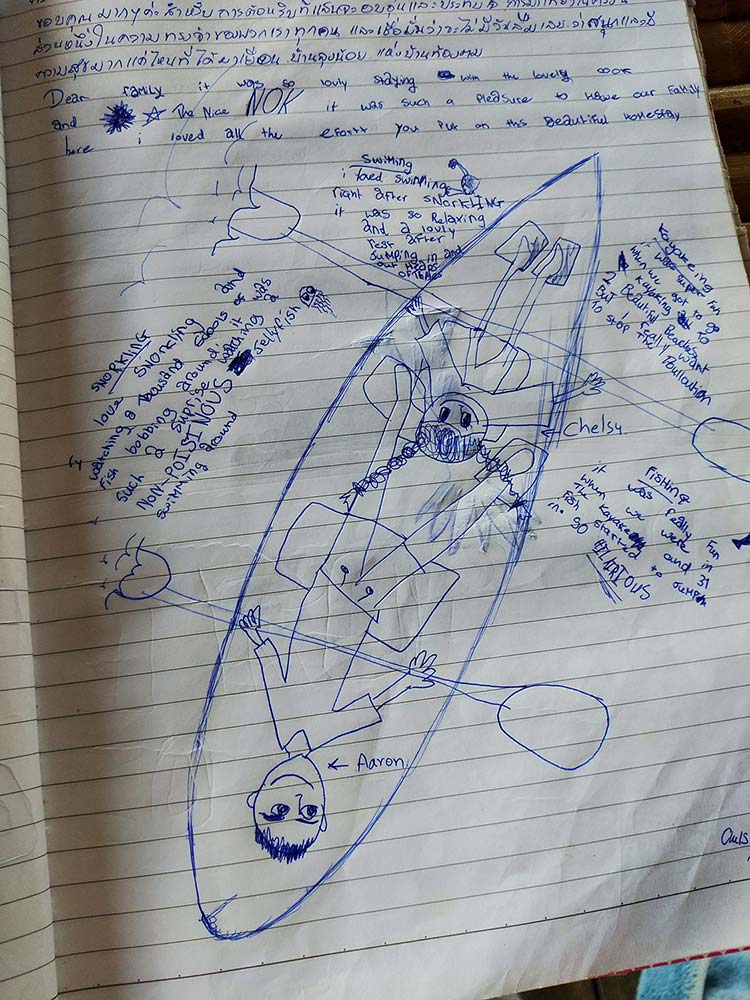 ขอบคุณ มากๆค่ะ สำหรับ การต้อนรับที่แสนจะอบอุ่นและประทับใจ
ส่วนหนึ่งในความทรงจำของพวกเราทุกคน และเชื่อมั่นว่าจะไม่มีวันลืมเลย
ความสุขมากแค่ไหนที่ได้มาเยือน บ้าน
Dear family it was so lovly staying with the lovely cook
and The Nice NOK it was such a pleasure to Have our Family
here i loved all the efortt you put on this Beautiful Homestay
Swiming
i loved swimming
right after SNORKLING
it was so Relaxing
and a lovly
rest after
Jumping in and
out
of times
Kayakeing
it was super fun
when we got to go
Kayaking to
2 Beautiful Beaches
But i really want
To stop The Poullution
SNORKLING
i love snorcling and
watching a thousand scools of
fish bobbing around it was
such a suprise watching a
NON-POISINOUS Jellyfish
swimming around
← Chelsy.
FISHING
it was really Fun
when we were in
The Kayake and 31
Fish started to Jump
in SO HILARIOUS
← Aaron.